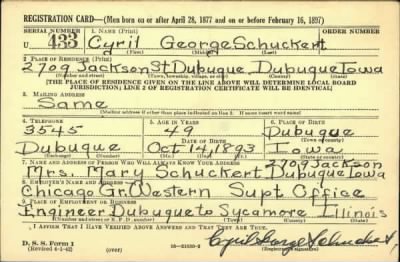 REGISTRATION CARD—(Men born on or after April 28, 1877 and on or before February 16, 1897)
SERIAL NUMBER 1. NAME (Print) ORDER NUMBER
U 433 Cyril George Schuckert
(First) (Middle) (Last)
2. PLACE OF RESIDENCE (Print)
2709 Jackson St Dubuque Dubuque Iowa
(Number and street) (Town, township, village, or city) (County) (State)
[THE PLACE OF RESIDENCE GIVEN ON THE LINE ABOVE WILL DETERMINE LOCAL BOARD
JURISDICTION; LINE 2 OF REGISTRATION CERTIFICATE WILL BE IDENTICAL]
3. MAILING ADDRESS
Same
[Mailing address if other than place indicated on line 2. If same insert word same]
4. TELEPHONE 5. AGE IN YEARS 6. PLACE OF BIRTH
3545 49 Dubuque
DATE OF BIRTH (Town or county)
Dubuque Oct 14 1893 Iowa
(Exchange) (Number) (Mo.) (Day) (Yr.) (State or country)
7. NAME AND ADDRESS OF PERSON WHO WILL ALWAYS KNOW YOUR ADDRESS 2709 Jackson
Mrs. Mary Schuckert Dubuque Iowa
8. EMPLOYER'S NAME AND ADDRESS
Chicago Gr. Western Supt Office
9. PLACE OF EMPLOYMENT OR BUSINESS
Engineer Dubuque to Sycamore Illinois
(Number and street or R. F. D. number) (Town) (County) (State)
I AFFIRM THAT I HAVE VERIFIED ABOVE ANSWERS AND THAT THEY ARE TRUE.
D. S. S. Form 1
(Revised 4-1-42) (over) Cyril George Schuckert
(Registrant's signature)